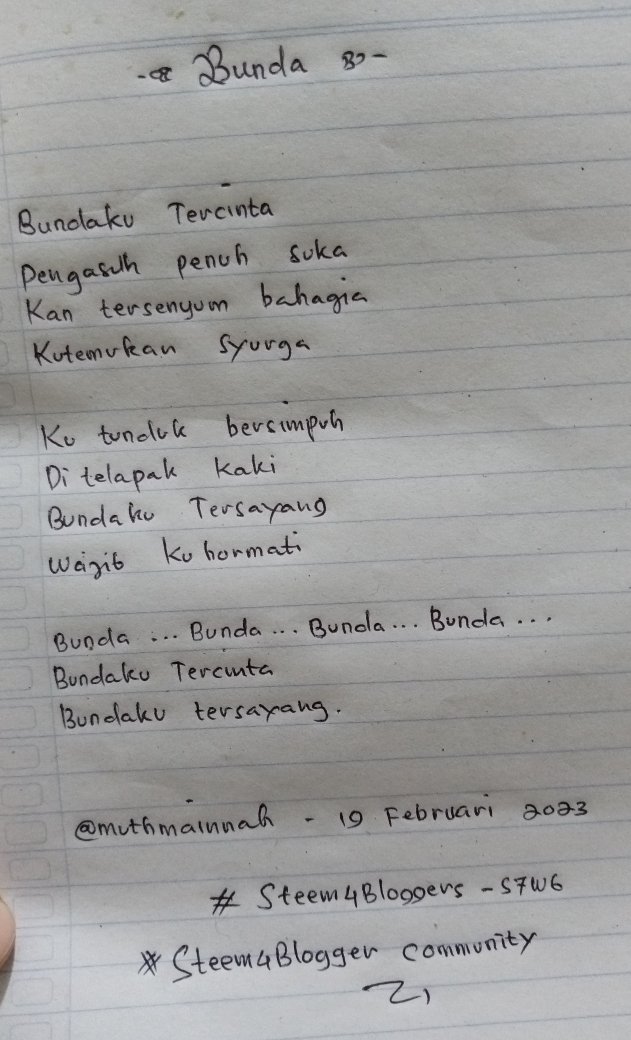 Bunda
Bundaku Tercinta
Pengasuh penuh suka
Kan tersenyum bahagia
Kutemukan Syurga
Ku tunduk bersimpuh
Di telapak kaki
Bundaku Tersayang
Wajib ku hormati
Bunda ... Bunda ... Bunda ... Bunda ...
Bundaku Tercinta
Bundaku tersayang.
@muthmainnah - 19 Februari 2023
# Steem4Bloggers - S7W6
* Steem4Blogger Community